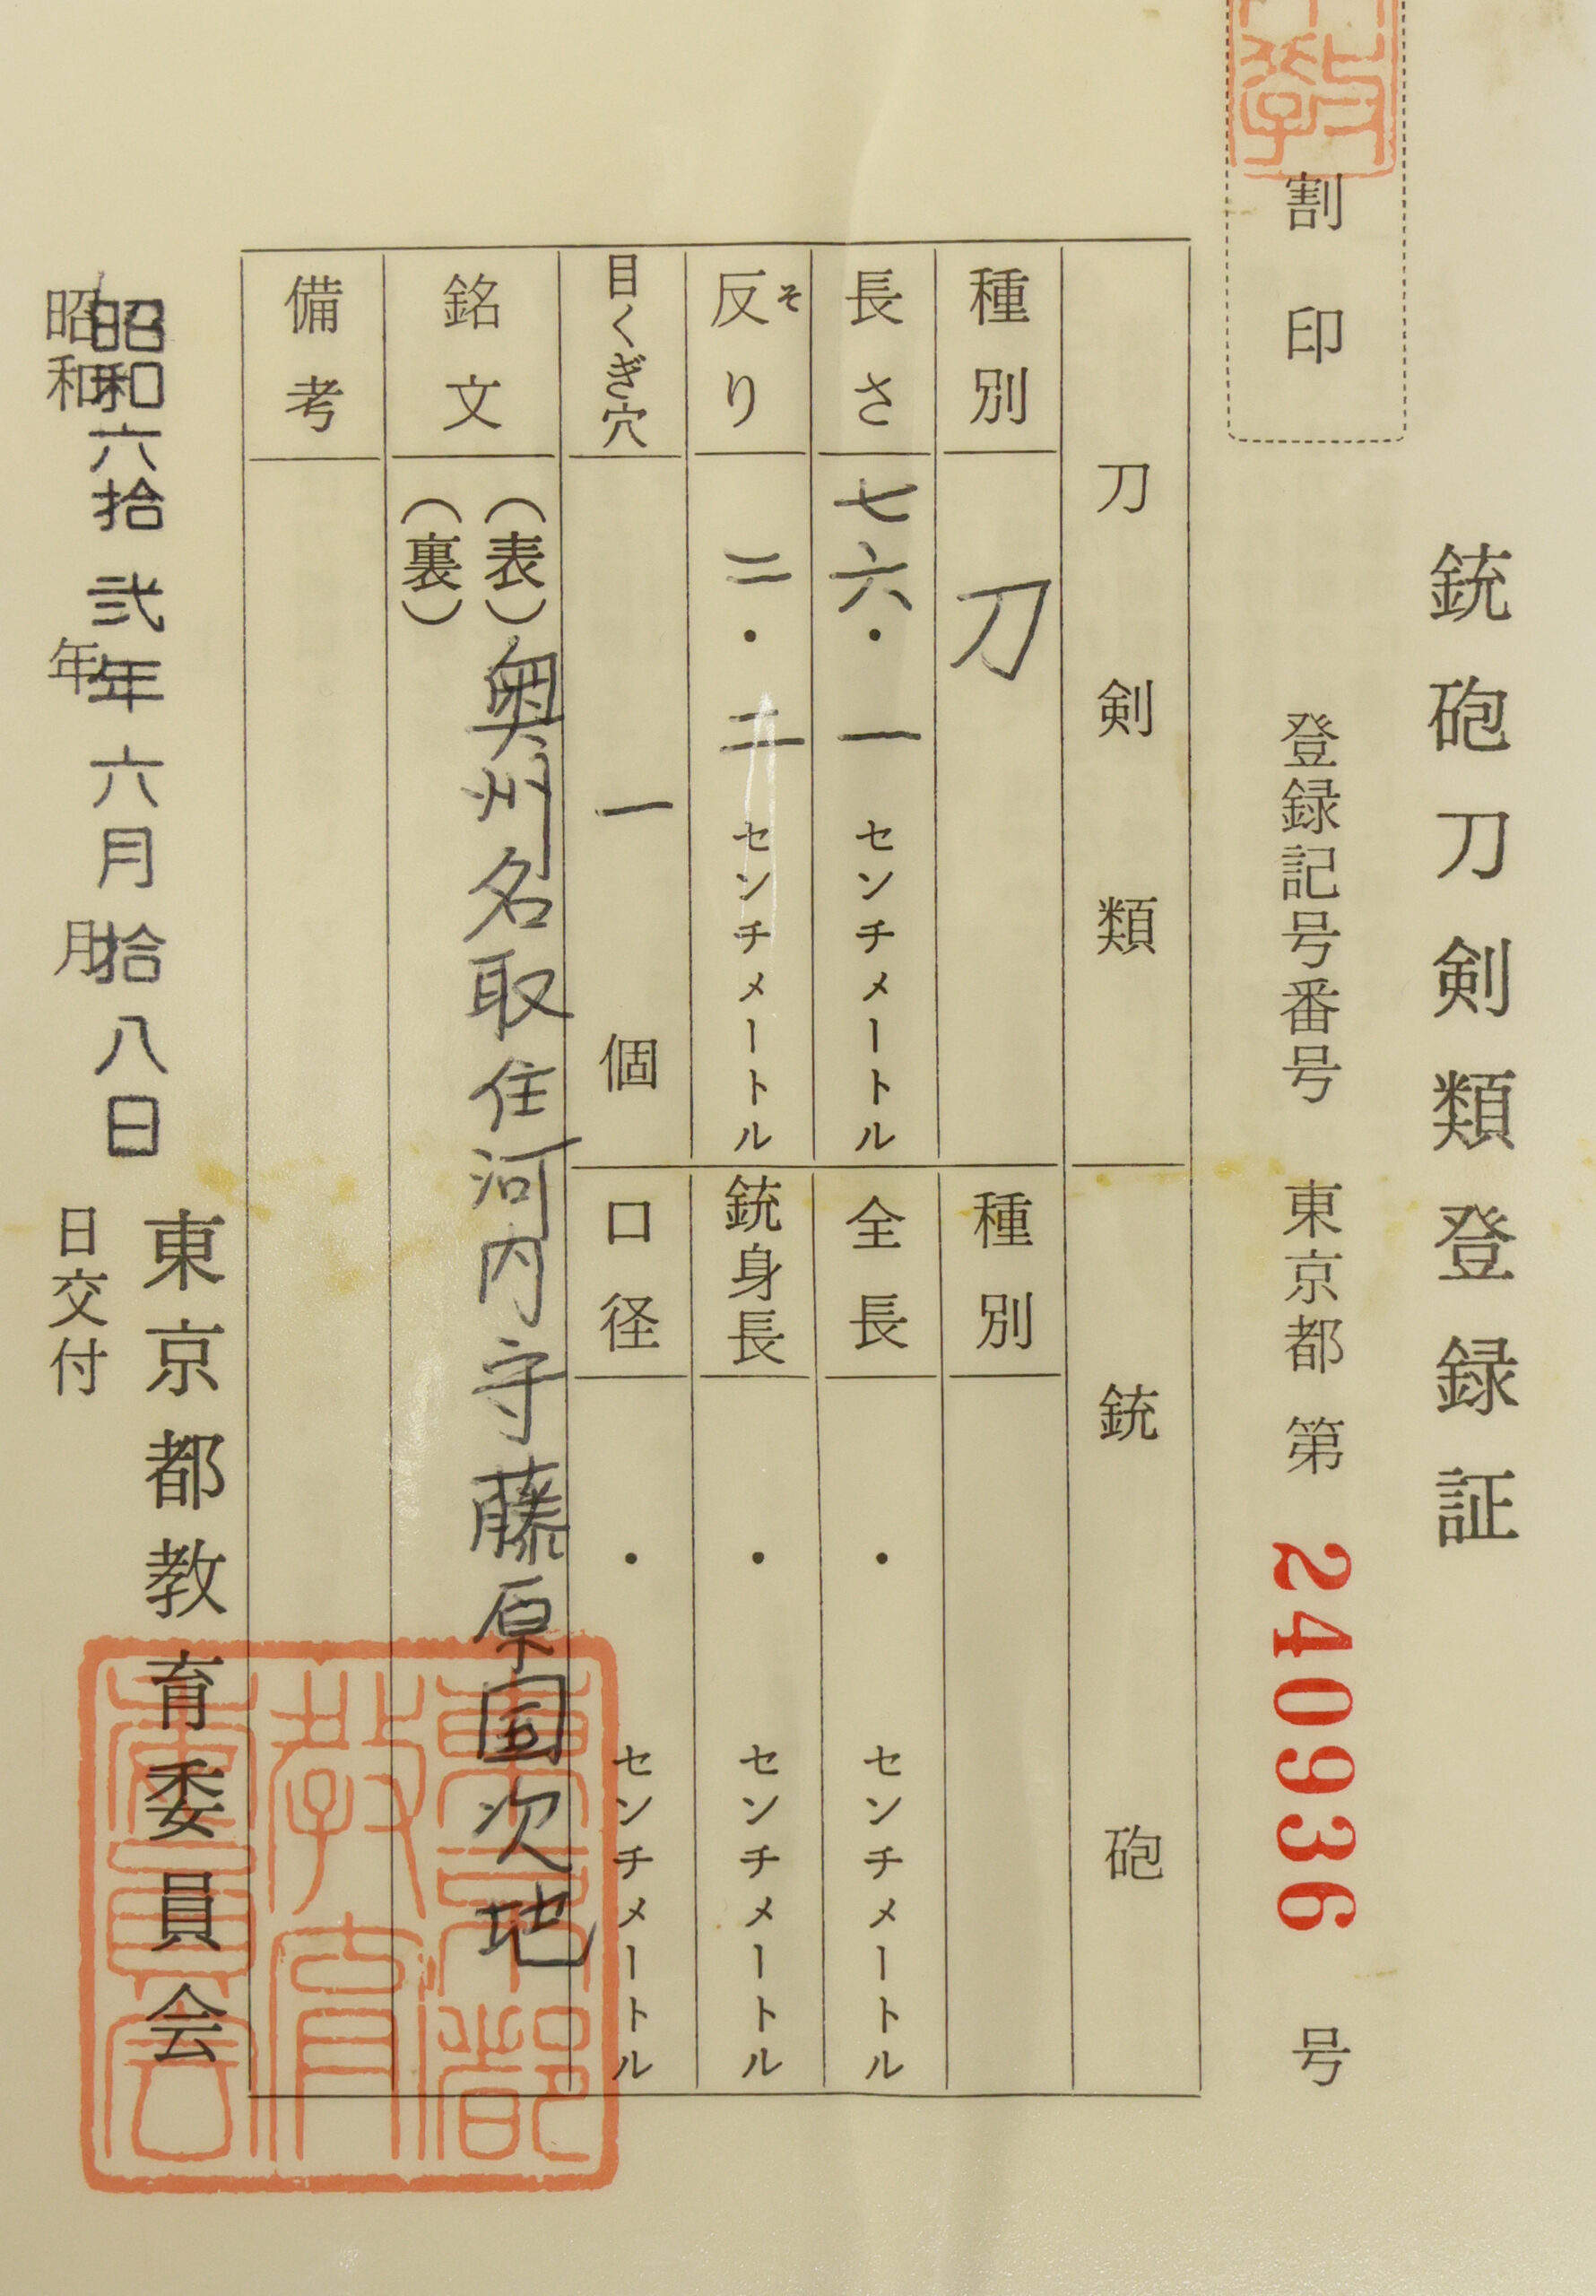 銃砲刀剣類登録証
割印
登録記号番号 東京都 第 240936 号
刀剣類
銃砲
種別 刀
種別
長さ 七六・一センチメートル
全長 ・ センチメートル
反り 二・二センチメートル
そ
銃身長 ・ センチメートル
目くぎ穴 一 個
口径 ・ センチメートル
銘文
(表)奥州名取住河内守藤原国次地
(裏)
備考
東京都教育委員会
昭和六拾弐年六月拾八日
昭和 年 月 日交付
東京都教育委員会